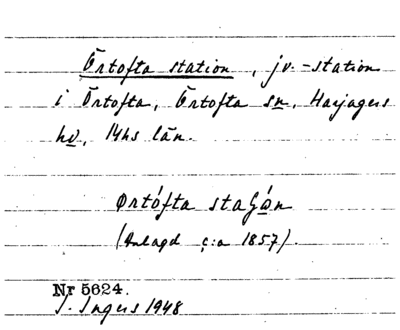 Örtofta station, jv.-station
i Örtofta, Örtofta sn, Harjagers
hd, Mhs län.
ørtófta staʃón
(Anlagd c:a 1857).
Nr 5624.
I. Ingers 1948